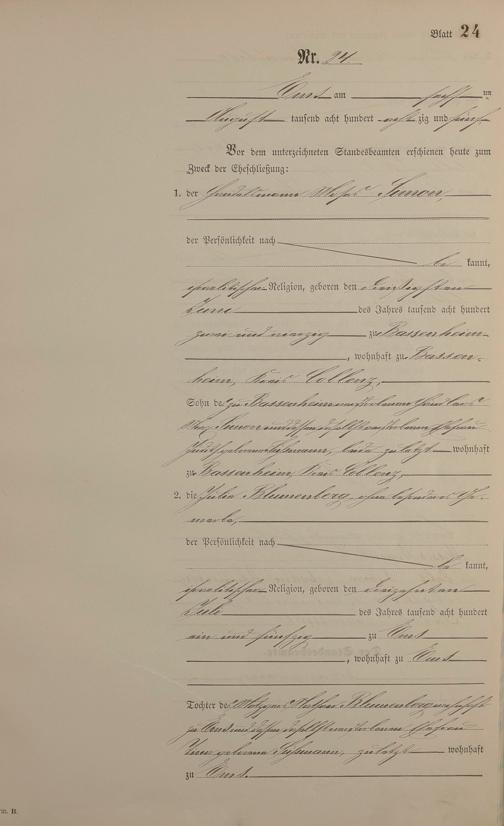 Blatt 24
Nr. 24
Ems am
August tausend acht hundert achtzig und fünf
Vor dem unterzeichneten Standesbeamten erschienen heute zum
Zweck der Eheschließung:
1. der Handelsmann Simon,
der Persönlichkeit nach
be kannt,
israelitischer Religion, geboren den
Juni des Jahres tausend acht hundert
zwei und zu Bassenheim
, wohnhaft zu Bassen-
heim, Kreis Coblenz,
Sohn des zu Bassenheim verstorbenen Handelsmanns
Simon und dessen daselbst verstorbenen Ehefrau
geborenen beide zuletzt wohnhaft
zu Bassenheim, Kreis Coblenz,
2. die Julia Blumenberg, ohne besonderes Ge-
werbe,
der Persönlichkeit nach
be kannt,
israelitischer Religion, geboren den dreizehnten
Juli des Jahres tausend acht hundert
ein und fünfzig zu Ems
, wohnhaft zu Ems
Tochter des Metzgers Blumenberg wohnhaft
zu Ems und dessen daselbst verstorbenen Ehefrau
geborenen zuletzt wohnhaft
zu Ems.
m. B.